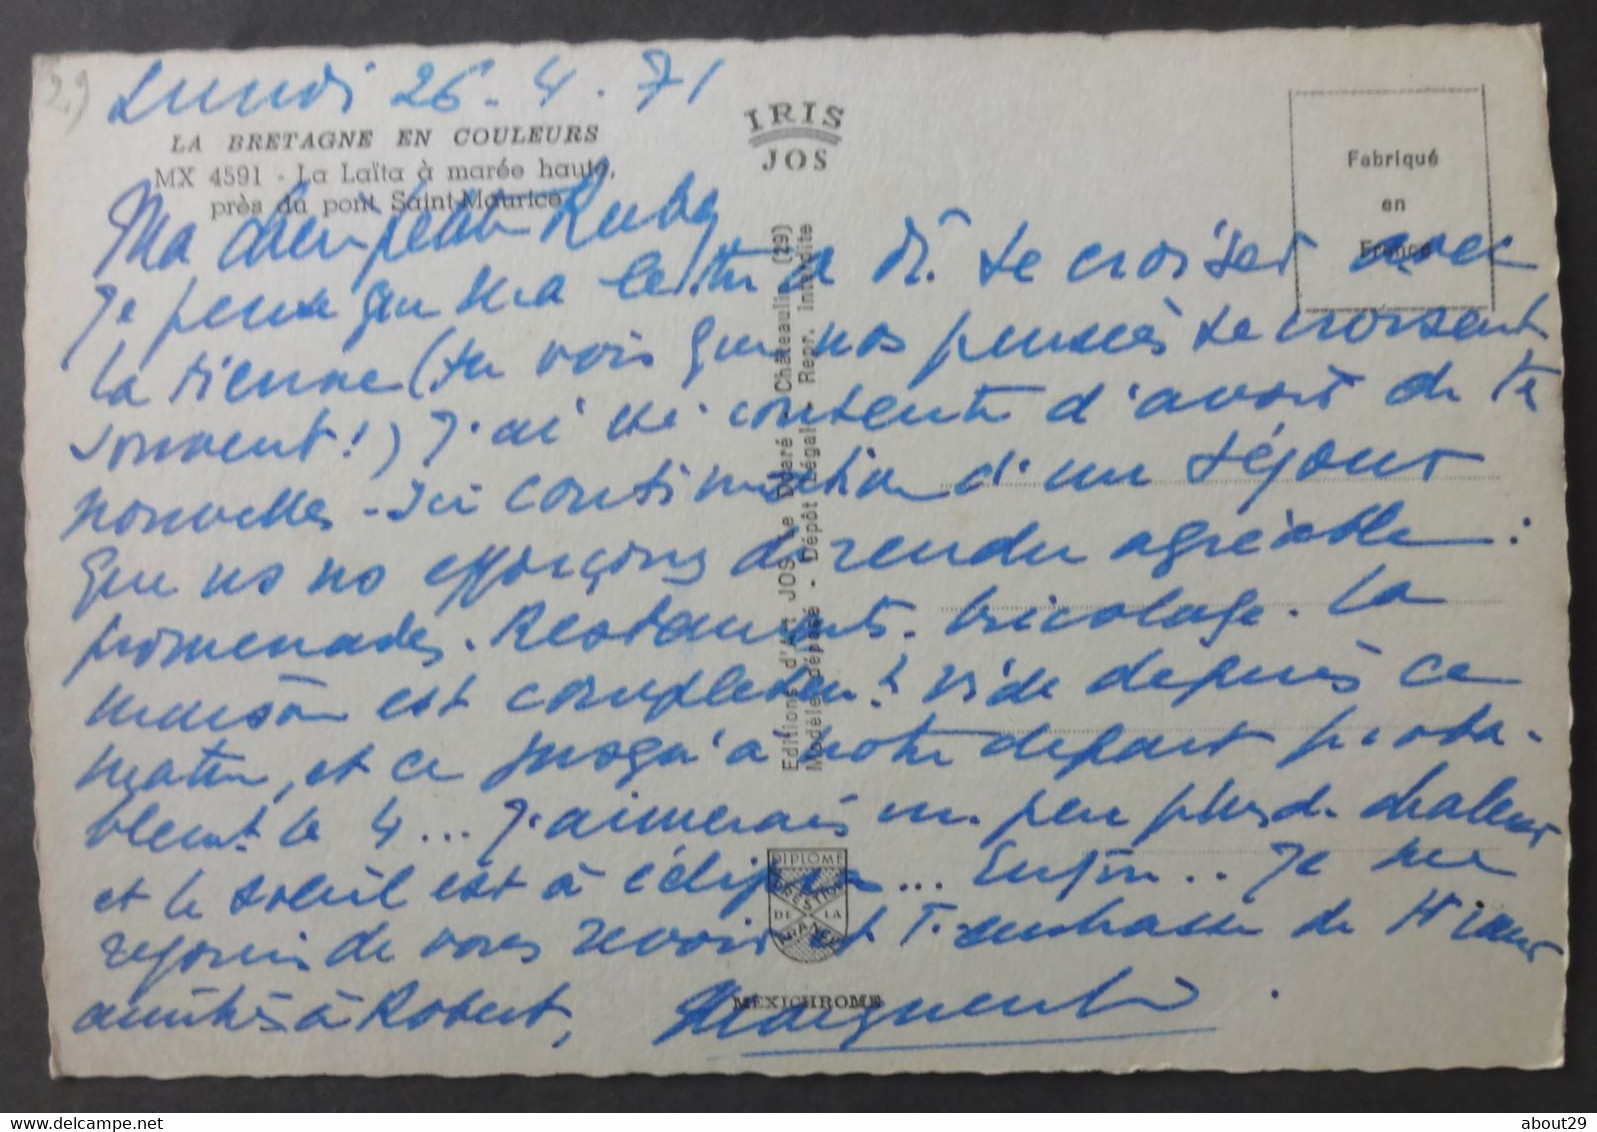 29
Lundi 26.4.71
LA BRETAGNE EN COULEURS
MX 4591 - La Laïta à marée haute,
près du pont Saint-Maurice
IRIS
JOS
Fabriqué
en
France
Ma chère petite
Je pense que ma lettre a dû se croiser avec
la tienne (tu vois que nos pensées se croisent
souvent!) J'ai été contente d'avoir de te
nouvelles - Ici continuation d'un séjour
que ns ns efforçons de rendre agréable :
promenades. Restaurants. bricolage. La
maison est complètemt vide depuis ce
matin, et ce jusqu'à notre départ proba-
blemt le 4... J'aimerais un peu plus de chaleur
et le soleil est à éclipses... Enfin.. Je me
rejouis de vous revoir et t'embrasse
amitiés à Robert, Marguerite.
Editions d'Art JOS Le Doaré - Châteaulin (29)
Modèle déposé - Dépôt Légal - Repr. Interdite
DIPLOME
PRESTIGE
DE LA
FRANCE
MEXICHROME
delcampe.net
about29